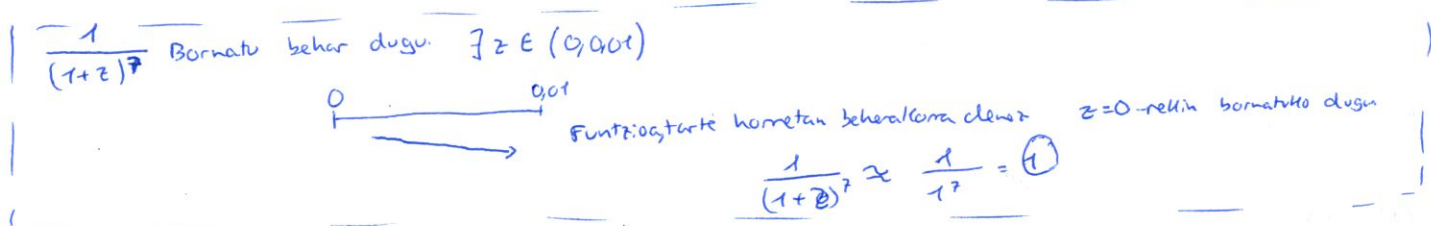 1/(1+z)^7 Bornatu behar dugu. ∃ z ∈ (0, 0,01)
0 0,01
Funtzioa, tarte horretan beherakorra denez z=0-rekin bornatuko dugu
1/(1+z)^7 ≈ 1/1^7 = 1